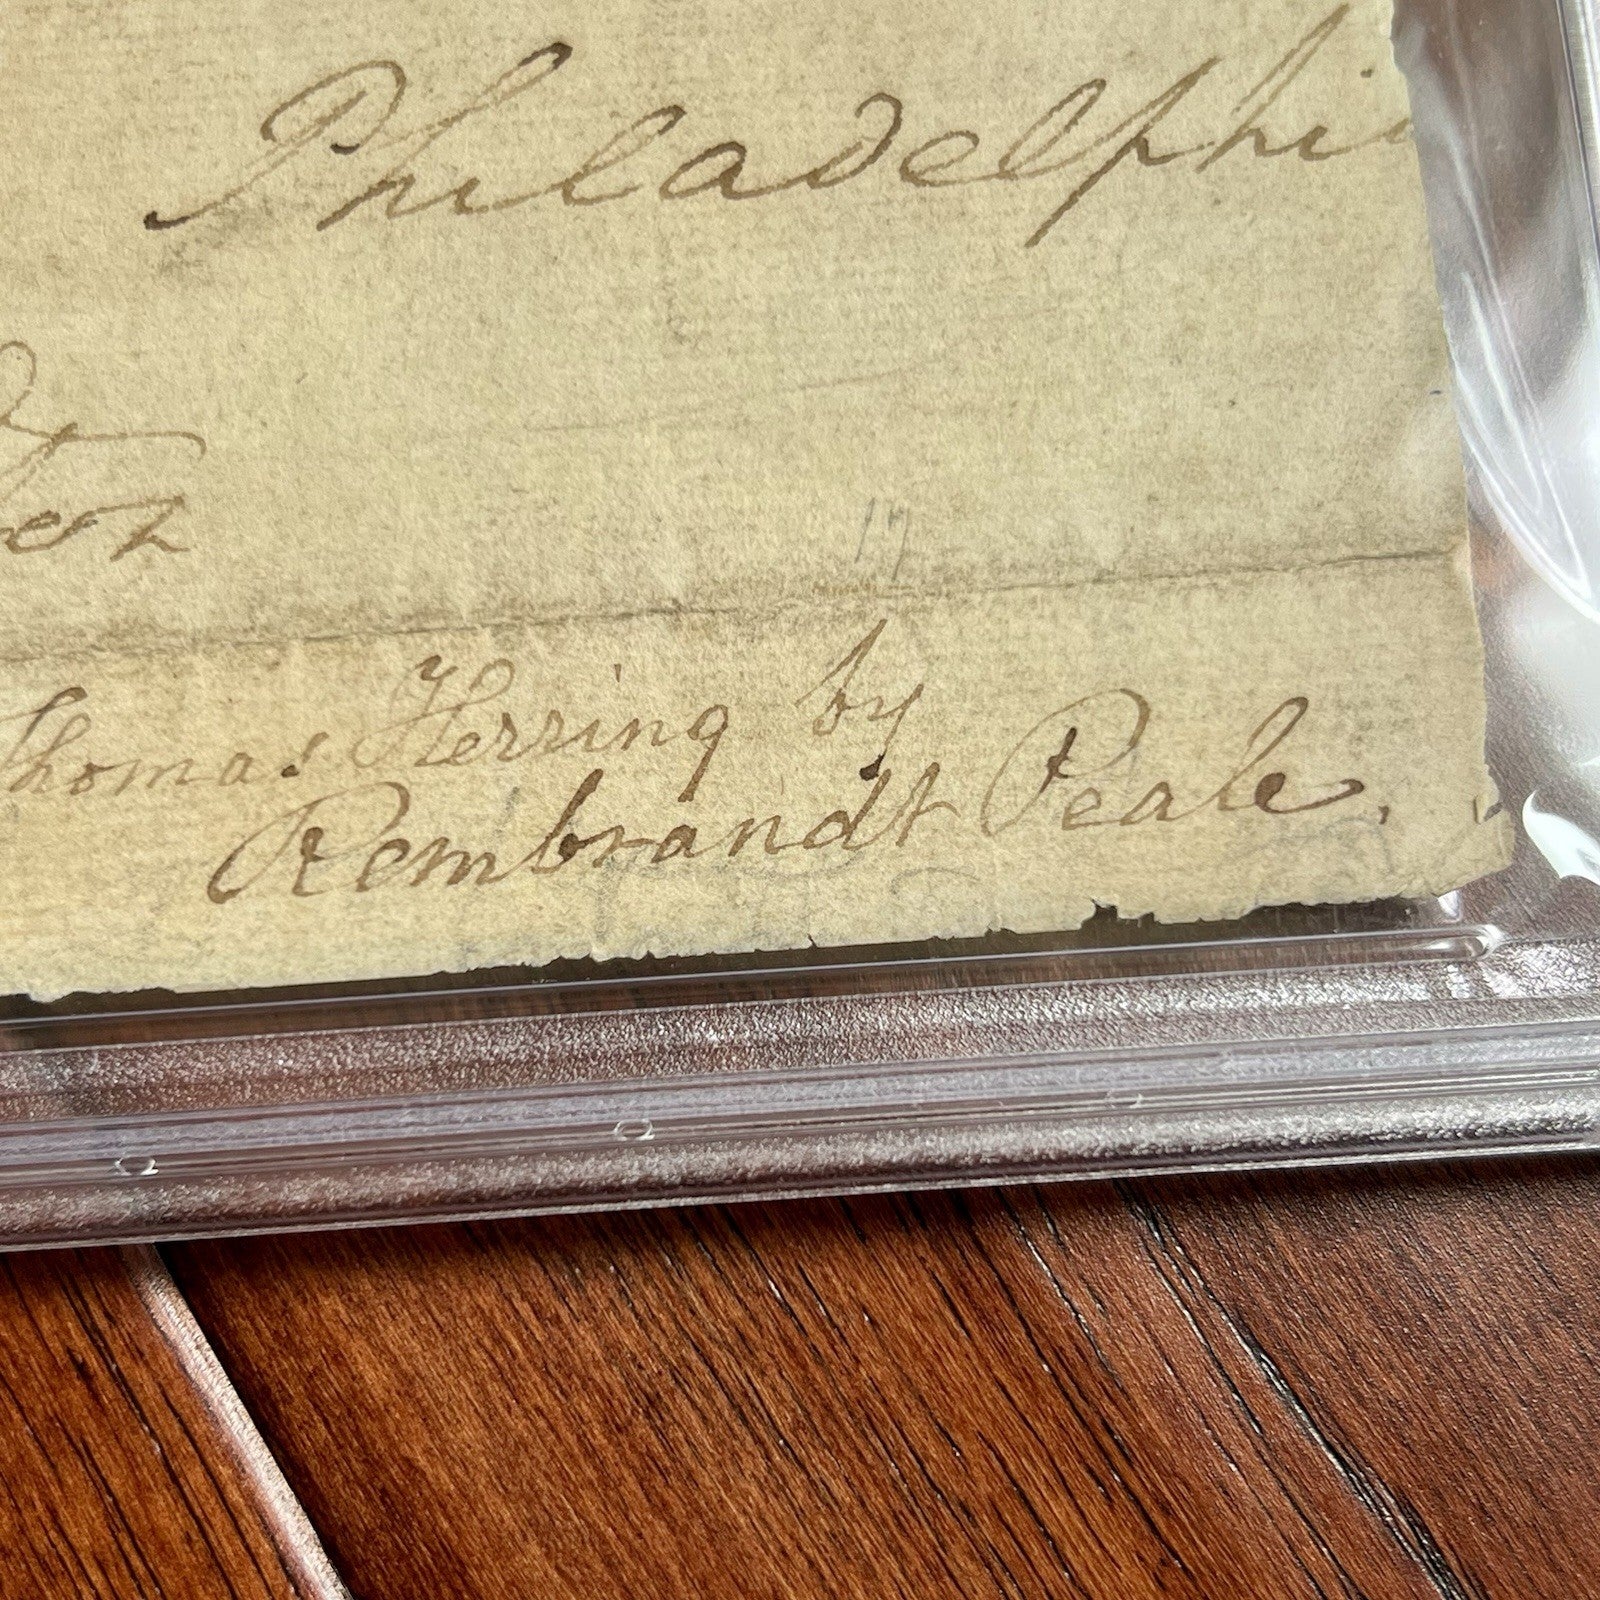 Philadelphi
17
Thomas Herring by
Rembrandt Peale.